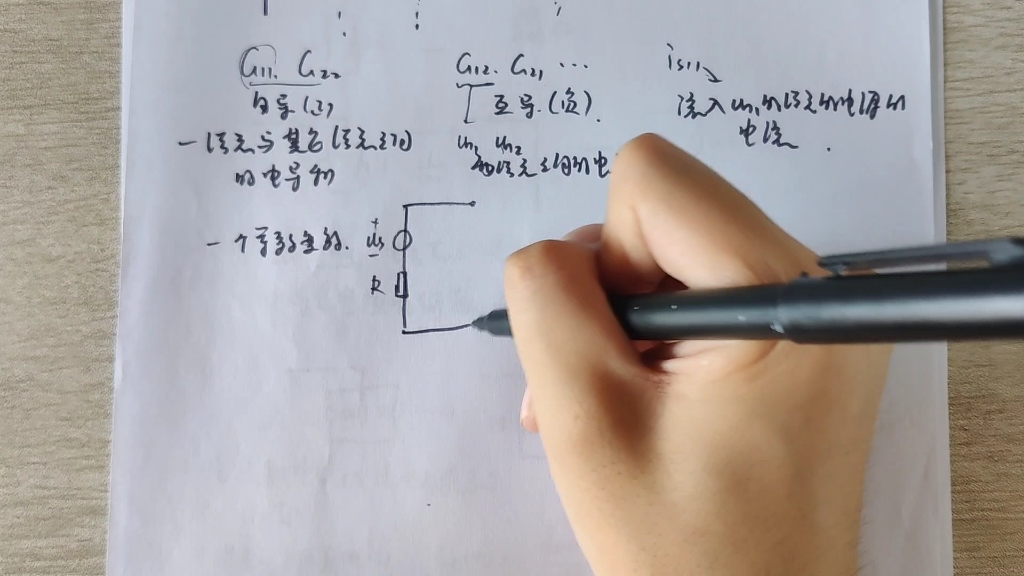 G11. G22
自导.(正)
一结点与其它结点之间
的电导和
G12. G21 ...
互导.(负).
un1 un2
两结点之间的电
is11
流入un1的结点的电源的
电流.
一个等效变换.
+
us
-
R